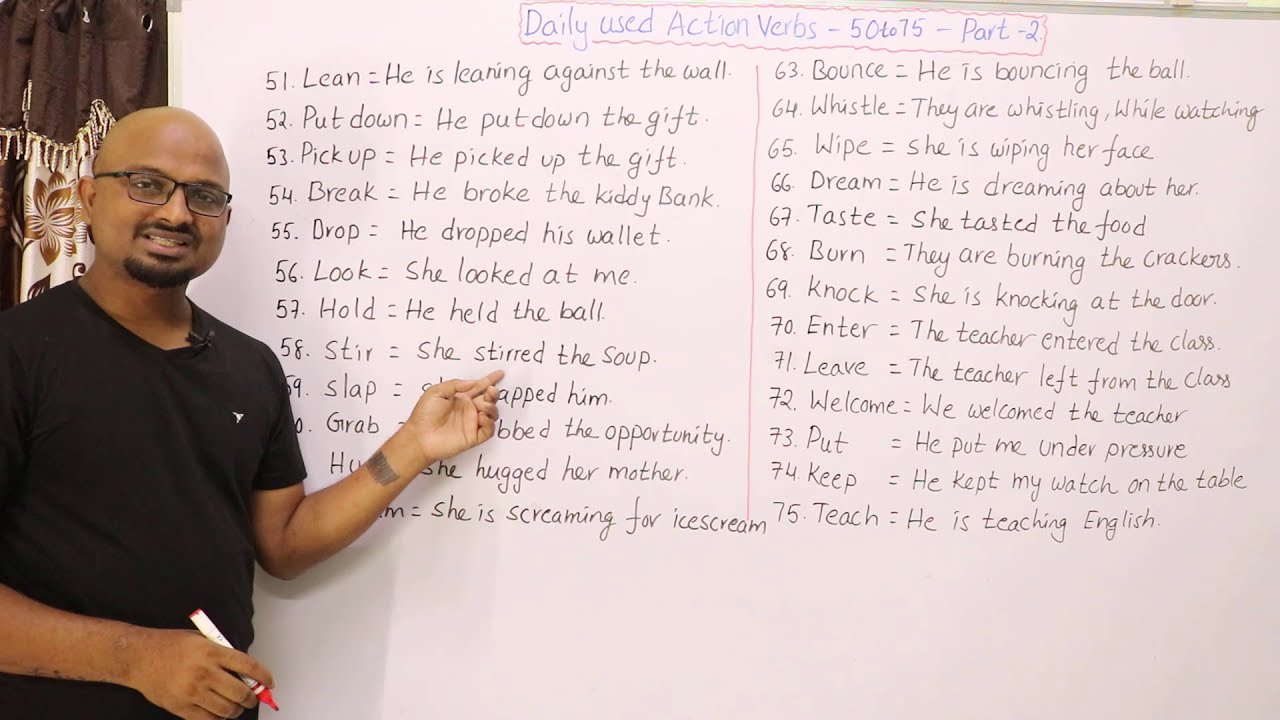 Daily used Action Verbs - 50 to 75 - Part - 2.
51. Lean = He is leaning against the wall.
52. Put down = He put down the gift.
53. Pick up = He picked up the gift.
54. Break = He broke the kiddy Bank.
55. Drop = He dropped his wallet.
56. Look = She looked at me.
57. Hold = He held the ball.
58. Stir = She stirred the soup.
59. Slap = apped him.
Grab = bbed the opportunity.
Hu She hugged her mother.
m = She is screaming for icescream
63. Bounce = He is bouncing the ball.
64. Whistle = They are whistling, While watching
65. Wipe = She is wiping her face
66. Dream = He is dreaming about her.
67. Taste = She tasted the food
68. Burn = They are burning the crackers.
69. Knock = She is knocking at the door.
70. Enter = The teacher entered the class.
71. Leave = The teacher left from the class
72. Welcome = We welcomed the teacher
73. Put = He put me under pressure
74. Keep = He kept my watch on the table
75. Teach = He is teaching English.